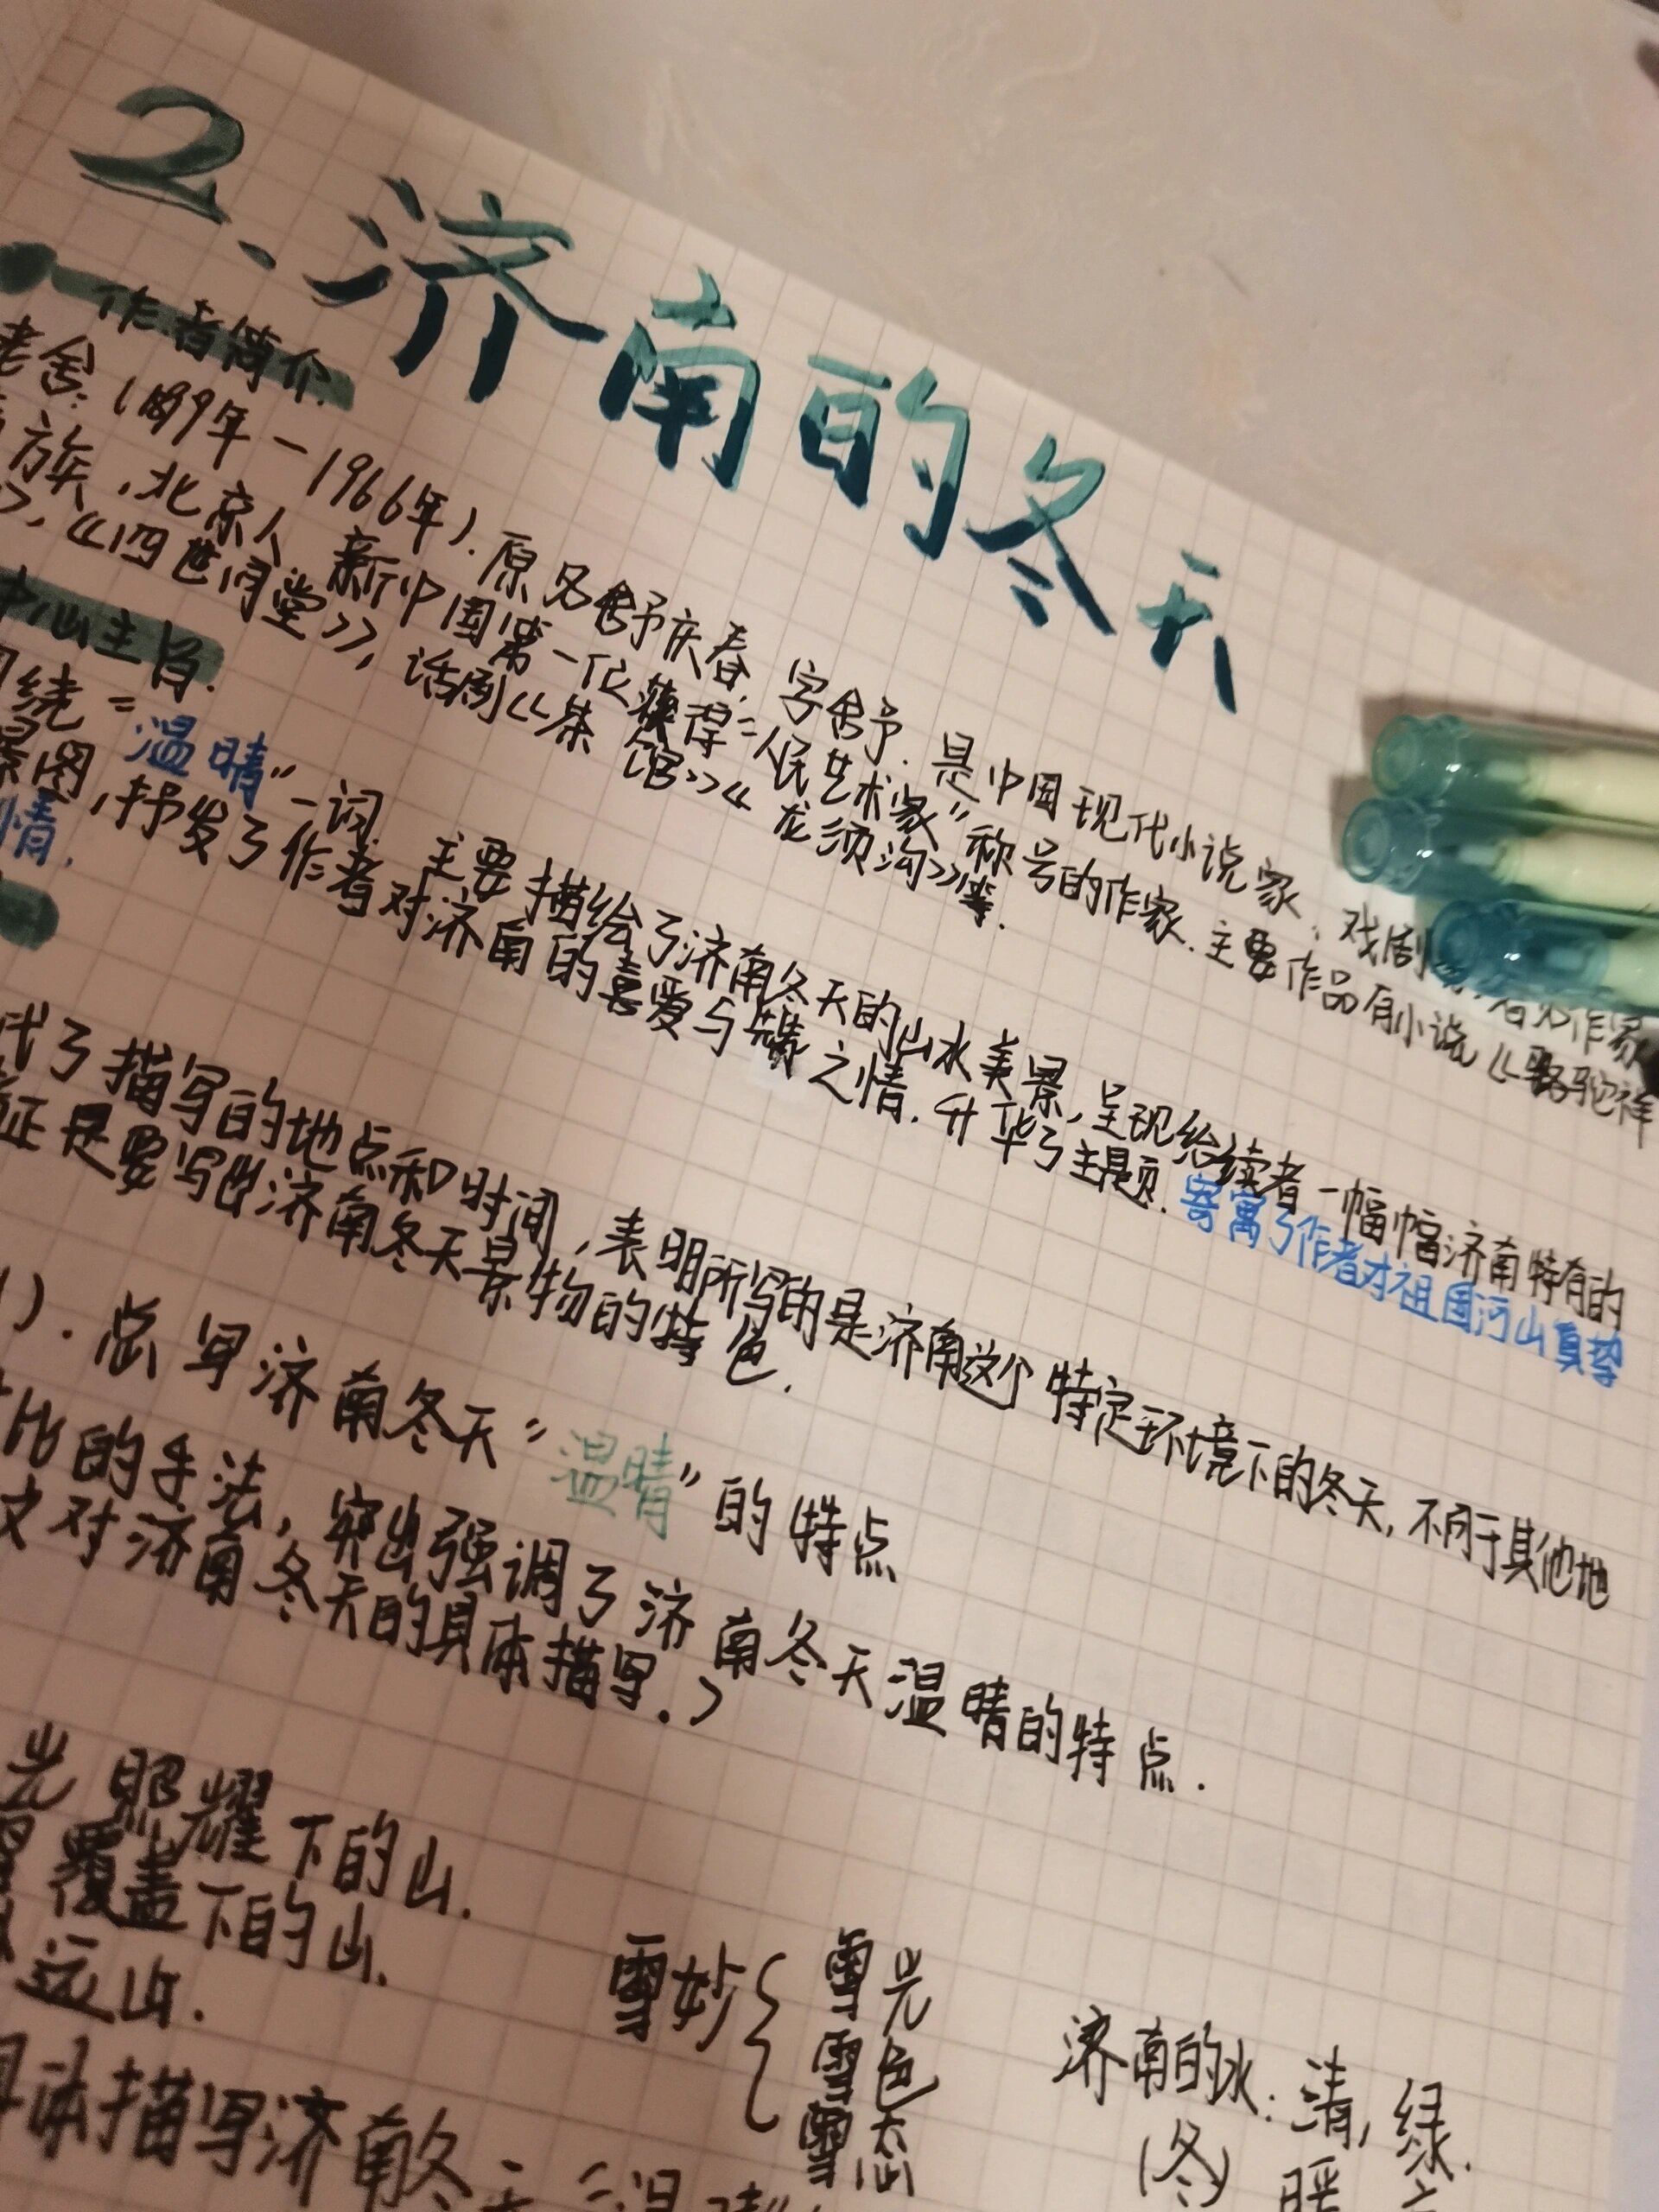 2.济南的冬天
作者简介.
老舍:(1899年-1966年).原名舒庆春,字舍予.是中国现代小说家、戏剧
族,北京人,新中国第一位获得“人民艺术家”称号的作家.主要作品有小说《骆驼祥
》,《四世同堂》,话剧《茶馆》《龙须沟》等.
中心主旨.
绕“温晴”一词.主要描绘了济南冬天的山水美景,呈现给读者一幅幅济南特有的
景图,抒发了作者对济南的喜爱与之情.升华了主题.寄寓了作者对祖国河山真挚
情.
代了描写的地点和时间,表明所写的是济南这个特定环境下的冬天,不同于其他地
正是要写出济南冬天景物的特色.
1).总写济南冬天“温晴”的特点
比的手法,突出强调了济南冬天温晴的特点.
文对济南冬天的具体描写.)
光照耀下的山.
覆盖下的山.
远山.
雪妙{雪光
雪色
雪态
济南的水:清,绿.
(冬)暖
具体描写济南冬天“温晴